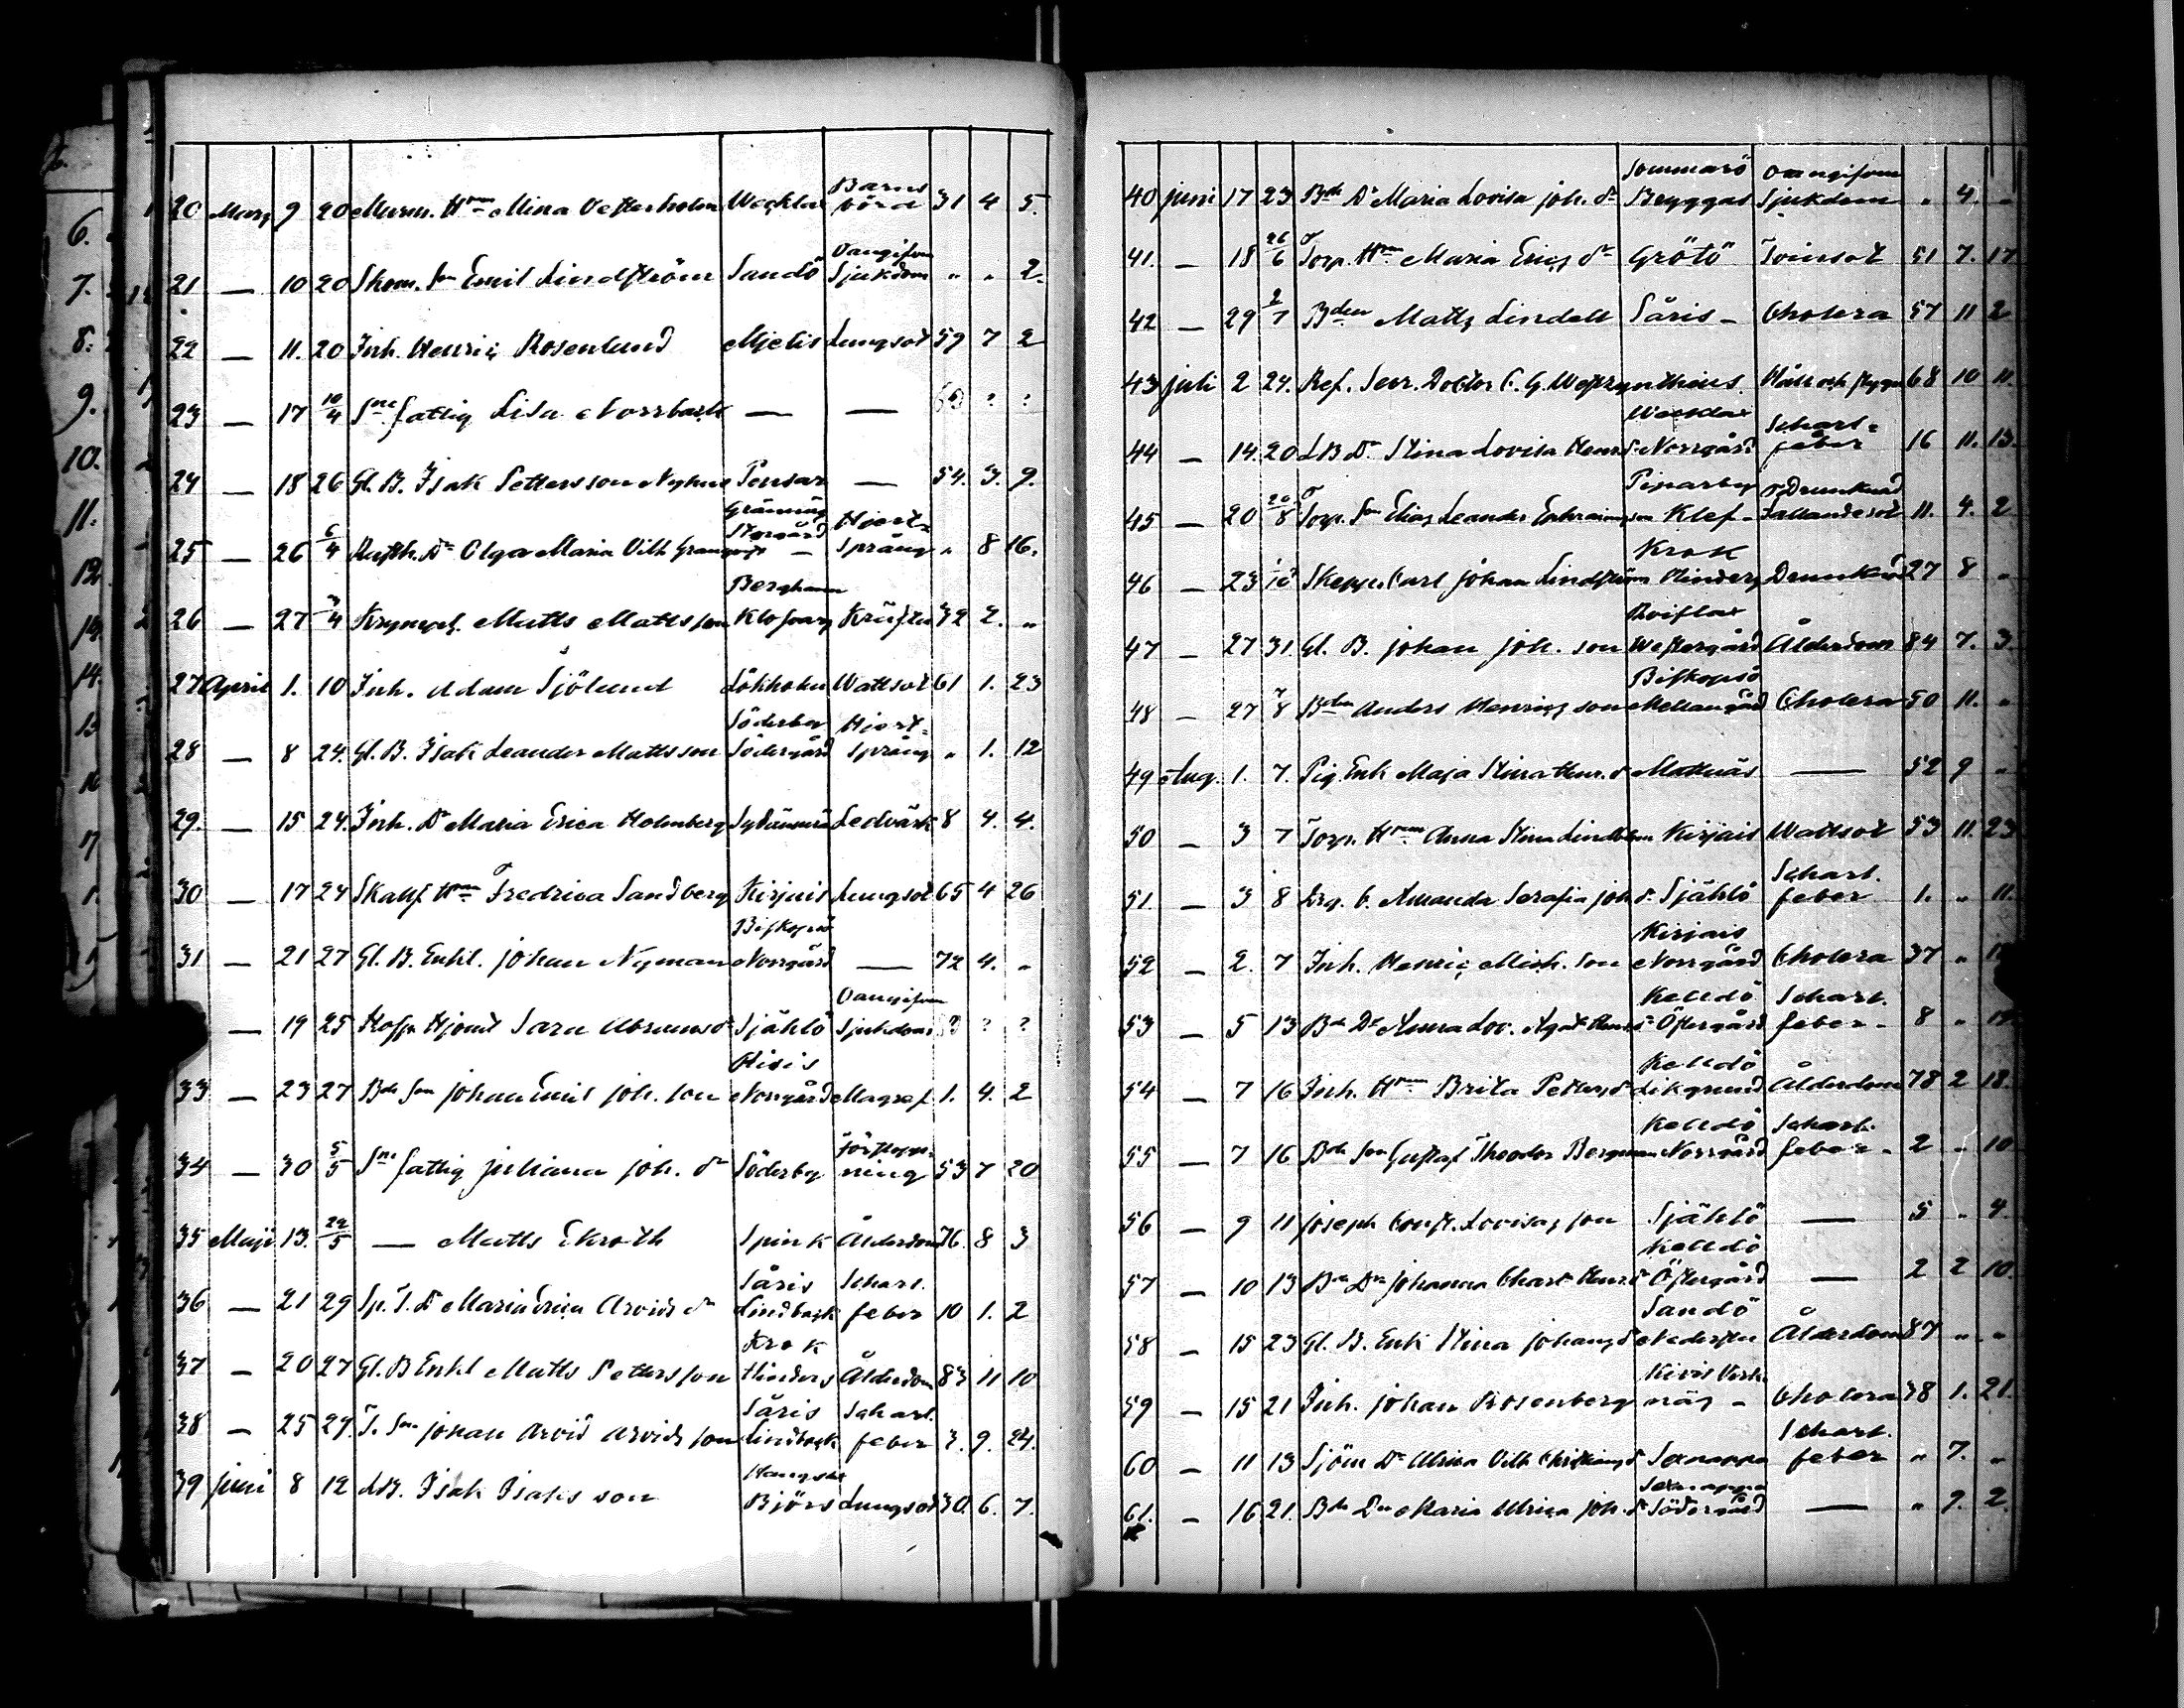 20 Mars 9 20 Murm. Hru Mina Vesterholm Wagklax Barns börd 31 4 5.
21 — 10 20 Skom. Son Emil Lindström Sandö Oangifven Sjukdom " " 2.
22 — 11. 20 Inh. Henric Rosenlund Mielis Lungsot 59 7 2
23 — 17 10/4 Sne fattig Lisa Norrback — — ? ?
24 — 18 26 Gl. B. Isak Pettersson Nyman Pensar — 54. 3. 9.
25 — 26 6/4 Dr Olga Maria Vilh. Storgård — Hjert= språng " 8 16.
26 — 27 4 Matts Matts son Kräftan 32 2. "
27 April 1. 10 Inh. Adam Sjölund Lökholm Wattsot 61 1. 23
28 — 8 24. Gl. B. Isak Leander Mattsson Söderby Södergård Hjert= språng " 1. 12
29. — 15 24. Inh. Dr Maria Erica Holmberg Ledvärk 8 4. 4.
30 — 17 24 Hru Fredrica Sandberg Kirjais Lungsot 65 4 26
31 — 21 27 Gl. B. Enkl. Johan Nyman Biskopsö Norrgård — 72 4. "
— 19 25 Hosp. Hjonet Sara Abramsdr Själö Oangifven Sjukdom ? ?
33 — 23 27 Bde Son Johan Emil Joh. son Hisis Norrgård Magref 1. 4. 2
34 — 30 5/5 Sne fattig Juliana Joh. dr Söderby förstopp= ning 53 7 20
35 Maji 13. 22/5 — Matts Ekroth Spink Ålderdom 76. 8 3
36 — 21 29 Sp. T. Dr Maria Erica Arvids dr Såris Lindback Scharl. feber 10 1. 2
37 — 20 27 Gl. B Enkl Matts Petters son Krok Hinders Ålderdom 83 11 10
38 — 25 29. T. Son Johan Arvid Arvids son Såris Lindback Scharl. feber 3. 9. 24.
39 Juni 8 12 LB. Isak Isaks son Björs Lungsot 30. 6. 7.
40 Juni 17 23 Bde Dr Maria Lovisa Joh. dr Sommarö Bryggas Oangifven Sjukdom " 4. "
41. — 18 26/6 Torp. Hru Maria Erics dr Grötö Tvinsot 51 7. 17
42 — 29 2/7 Bden Matts Lindell Såris — Cholera 57 11 2
43 Juli 2 24. Ref. Secr. Doctor C. G. Westzynthius Håll och stygn 68 10 11.
44 — 14. 20 LB Dr Stina Lovisa Henrs dr Wacklax Norrgård Scharl= feber 16 11. 13.
45 — 20 20/8 Torp. Son Elias Leander Ephraims son Piparby Klef — Drunknad Fallandesot 11. 4. 2
46 — 23 Skepp. Carl Johan Lindström Krok Hinders Drunknad 27 8 "
47 — 27 31 Gl. B. Johan Joh. son Roislax Westergård Ålderdom 84 7. 3
48 — 27 8 Bden Anders Henrics son Biskopsö Mellangård Cholera 50 11. "
49 Aug. 1. 7. Pig. Enk Maja Stina Henr. dr Mattnäs — 52 9 "
50 — 3 7 Torp. Hru Anna Stina Lindblom Kirjais Wattsot 53 11. 23
51. — 3 8 Amanda Serafia Joh dr Själö Scharl. feber 1. " 11.
52 — 2. 7 Inh. Henric Mich. son Kirjais Norrgård Cholera 37 "
53 — 5 13 Bde Dr Anna Lov. Agat. Henrs dr Kelldö Östergård Scharl. feber — 8 "
54 — 7 16 Inh. Hru Brita Petters dr Kelldö Likgrund Ålderdom 78 2 18.
55 — 7 16 Bde Son Gustaf Theodor Bergman Kelldö Norrgård Scharl. feber — 2 " 10
56 — 9 11 Joseph Const. Lovisas son Själö — 5 " 4.
57 — 10 13 Bde Dr Johanna Charl. Henrs dr Kelldö Östergård — 2 2 10.
58 — 15 23 Gl. B. Enk Stina Johans dr Sandö Nederstu Ålderdom 87 " "
59 — 15 21 Inh. Johan Rosenberg näs — Cholera 38 1. 21.
60 — 11 13 Sjöm Dr Ulrica Vilh. Christians dr Sexnappa Scharl. feber " 7. "
61. — 16 21. Bde Dr Maria Ulrica Joh. dr Sexnappa Södergård — " 9. 2.